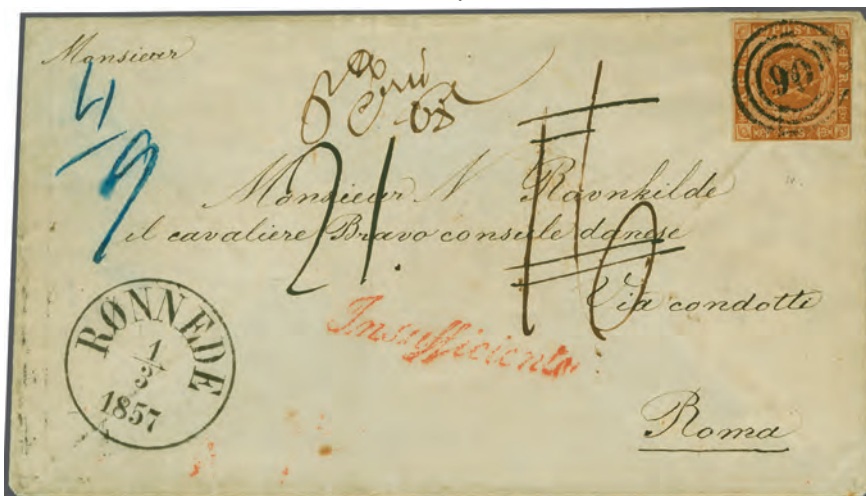 Monsieur
4/9
90
21.
Monsieur N Ravnkilde
il cavaliere Bravo console danese
Via condotti
Insufficiente
RØNNEDE
1/3
1857
Roma